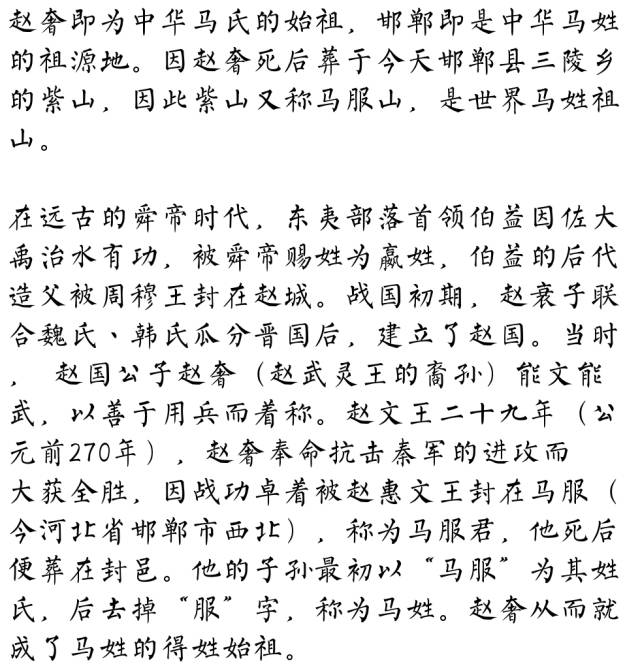 赵奢即为中华马氏的始祖，邯郸即是中华马姓
的祖源地。因赵奢死后葬于今天邯郸县三陵乡
的紫山，因此紫山又称马服山，是世界马姓祖
山。
在远古的舜帝时代，东夷部落首领伯益因佐大
禹治水有功，被舜帝赐姓为嬴姓，伯益的后代
造父被周穆王封在赵城。战国初期，赵襄子联
合魏氏、韩氏瓜分晋国后，建立了赵国。当时
， 赵国公子赵奢（赵武灵王的裔孙）能文能
武，以善于用兵而着称。赵文王二十九年（公
元前270年），赵奢奉命抗击秦军的进攻而
大获全胜，因战功卓着被赵惠文王封在马服（
今河北省邯郸市西北），称为马服君，他死后
便葬在封邑。他的子孙最初以“马服”为其姓
氏，后去掉“服”字，称为马姓。赵奢从而就
成了马姓的得姓始祖。